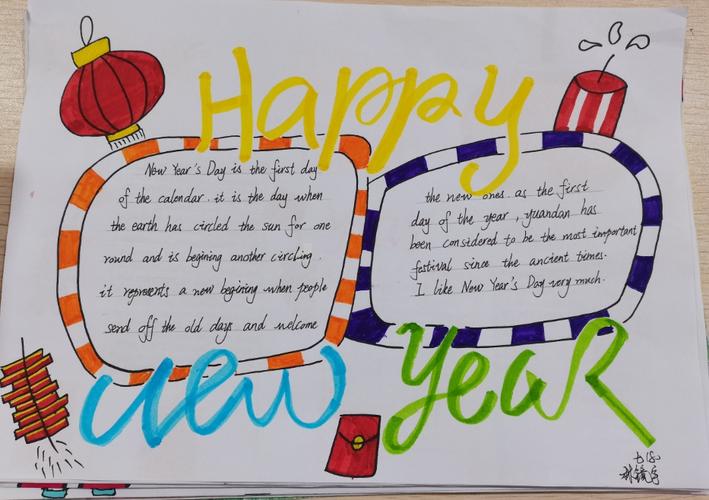 Happy
New Year's Day is the first day
of the calendar. it is the day when
the earth has circled the sun for one
round and is begining another circling.
it represents a new begining when people
send off the old days and welcome
the new ones. as the first
day of the year, yuandan has
been considered to be the most important
festival since the ancient times.
I like New Year's Day very much.
new year